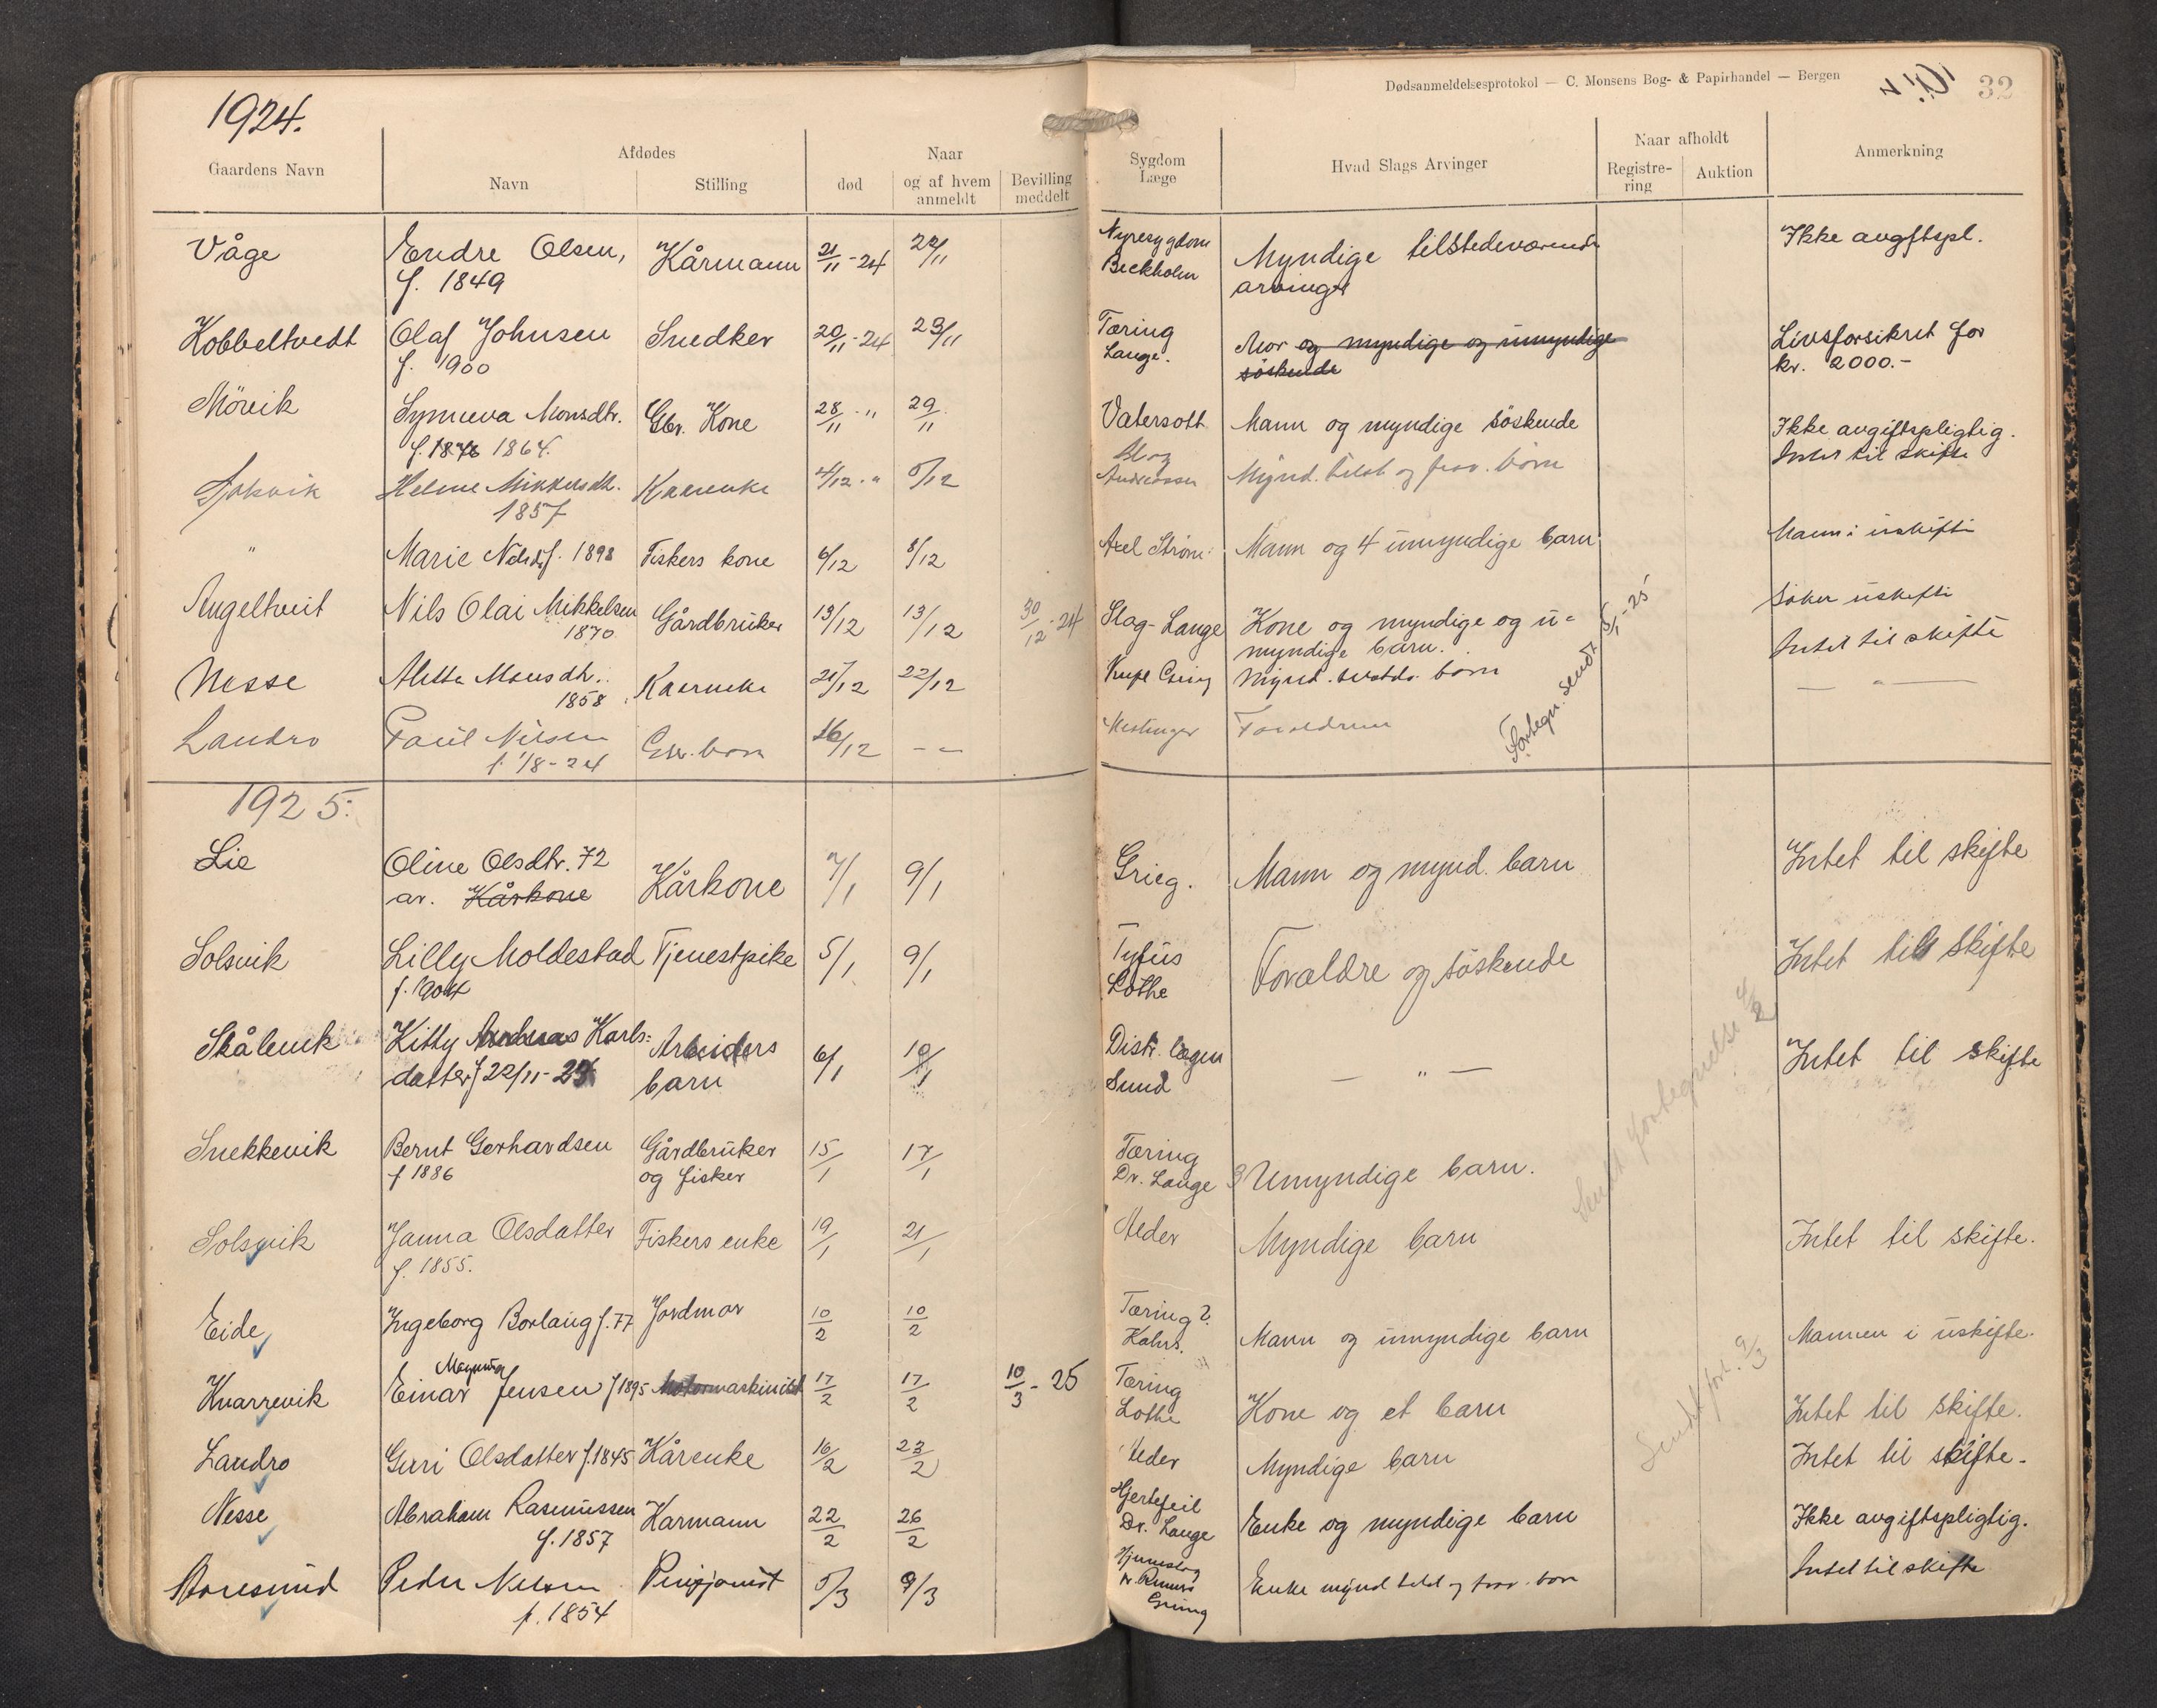 1924.
Dødsanmeldelsesprotokol — C. Monsens Bog- & Papirhandel — Bergen
32
Gaardens Navn
Afdødes
Navn
Stilling
Naar
død
og af hvem anmeldt
Bevilling meddelt
Sygdom Læge
Hvad Slags Arvinger
Naar afholdt
Registrering
Auktion
Anmerkning
Våge Endre Olsen, Kårmann 21/11-24 22/11 Nyresygdom Myndige tilstedeværende Ikke avgftspl.
f. 1849 arvinger
Kobbeltvedt Olaf Johnsen Snedker 20/11-24 23/11 Tæring Mor og myndige og umyndige Livsforsikret for
f. 1900 Lange. søskende kr. 2000.-
Mörvik Synneva Monsdtr. Gbr. Kone 28/11 " 29/11 Vatersott Mann og myndige söskende Ikke avgiftspligtig.
f. 1876 1864.
Mikkelsdtr. Kaarenke 4/12 " 5/12 Mynd. tilst og frav. børn Intet til skifte
1857
" Marie f. 1898 Fiskers kone 6/12 8/12 Axel Strøm Mann og 4 umyndige barn Mann i uskifte
Angeltveit Nils Olai Mikkelsen Gårdbruker 13/12 13/12 30/12-24 Slag-Lange Kone og myndige og u- Søker uskifte
1870 myndige barn.
Fortegn. sendt 5/1-25
Nesse Monsdtr. Kaarenke 21/12 22/12 Mynd. børn Intet til skifte
1858
Landro Paul Nilsen Gbr. barn 16/12 - - Forældrene — " —
f. 1/8-24
1925.
Lie Oline Olsdtr. 72 Kårkone 7/1 9/1 Grieg. Mann og mynd. barn Intet til skifte
ar. Kårkone
Solsvik Lilly Moldestad Tjenestpike 5/1 9/1 Tyfus Forældre og søskende Intet till skifte
f. 1904 Lothe
Skålevik Kitty Andreas Karls- Arbeiders 6/1 10/1 Distr. lægen — " — Intet til skifte
datter f 22/11-24 barn Sund
Sendt fortegnelse 4/2
Snekkevik Bernt Gerhardsen Gårdbruker 15/1 17/1 Tæring 3 Umyndige barn.
f 1886 og fisker Dr. Lange
Solsvik Janna Olsdatter Fiskers enke 19/1 21/1 Alder Myndige barn Intet til skifte.
f. 1855.
Eide Ingeborg Borlaug f. 77 Jordmor 10/2 10/2 Tæring? Mann og umyndige barn Mannen i uskifte.
Kahrs.
Magnus
Kvarrevik Einar Jensen f 1895 Motormaskinist 17/2 17/2 10/3-25 Tæring Kone og et barn Intet til skifte.
Lothe
Sendt fort. 9/3
Landro Guri Olsdatter f. 1845 Kårenke 16/2 23/2 Alder Myndige barn Intet til skifte.
Nesse Abraham Rasmussen Kårmann 22/2 26/2 Hjertefeil Enke og myndige barn Ikke avgiftspligtig.
f. 1857 Dr. Lange
Peder Nilsen 5/3 9/3 Hjerneslag Enke mynd tilst og frav. børn Intet til skifte
f. 1854 Grüng